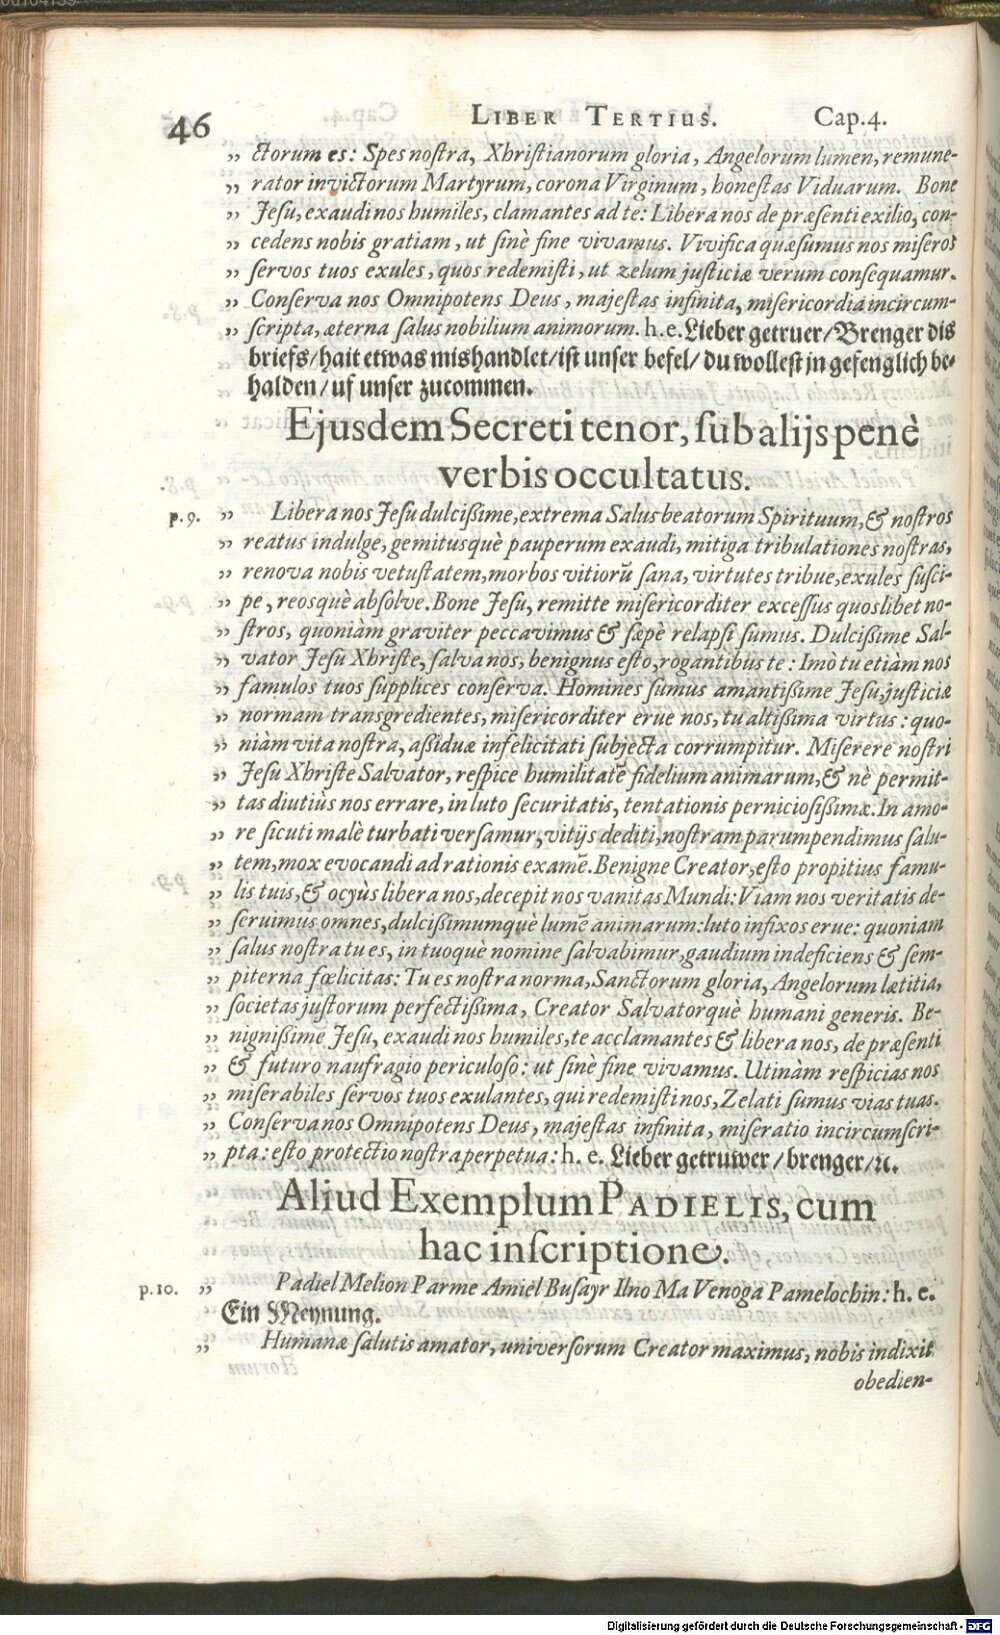 46 LIBER TERTIUS. Cap.4.
„ ctorum es: Spes nostra, Xhristianorum gloria, Angelorum lumen, remune-
„ rator invictorum Martyrum, corona Virginum, honestas Viduarum. Bone
„ Jesu, exaudi nos humiles, clamantes ad te: Libera nos de præsenti exilio, con-
„ cedens nobis gratiam, ut sinè fine vivamus. Vivifica quæsumus nos miseros
„ servos tuos exules, quos redemisti, ut zelum justiciæ verum consequamur.
„ Conserva nos Omnipotens Deus, majestas infinita, misericordia incircum-
„ scripta, æterna salus nobilium animorum. h.e. Lieber getruer/ Brenger dis
briefs/ hait etwas mishandlet/ ist unser befel/ du wollest jn gefenglich be-
halden/ uf unser zucommen.
Ejusdem Secreti tenor, sub alijs penè
verbis occultatus.
p.9. „ Libera nos Jesu dulcißime, extrema Salus beatorum Spirituum, & nostros
„ reatus indulge, gemitusquè pauperum exaudi, mitiga tribulationes nostras,
„ renova nobis vetustatem, morbos vitiorũ sana, virtutes tribue, exules susci-
„ pe, reosquè absolve. Bone Jesu, remitte misericorditer excessus quoslibet no-
„ stros, quoniàm graviter peccavimus & sæpè relapsi sumus. Dulcißime Sal-
„ vator Jesu Xhriste, salva nos, benignus esto, rogantibus te: Imò tu etiàm nos
„ famulos tuos supplices conserva. Homines sumus amantißime Jesu, justiciæ
„ normam transgredientes, misericorditer erue nos, tu altißima virtus: quo-
„ niàm vita nostra, aßiduæ infelicitati subjecta corrumpitur. Miserere nostri
„ Jesu Xhriste Salvator, respice humilitatẽ fidelium animarum, & nè permit-
„ tas diutiùs nos errare, in luto securitatis, tentationis perniciosißimæ. In amo-
„ re sicuti malè turbati versamur, vitijs dediti, nostram parumpendimus salu-
„ tem, mox evocandi ad rationis examẽ. Benigne Creator, esto propitius famu-
„ lis tuis, & ocyùs libera nos, decepit nos vanitas Mundi: Viam nos veritatis de-
„ seruimus omnes, dulcißimumquè lumẽ animarum: luto infixos erue: quoniam
„ salus nostra tu es, in tuoquè nomine salvabimur, gaudium indeficiens & sem-
„ piterna fœlicitas: Tu es nostra norma, Sanctorum gloria, Angelorum lætitia,
„ societas justorum perfectißima, Creator Salvatorquè humani generis. Be-
„ nignißime Jesu, exaudi nos humiles, te acclamantes & libera nos, de præsenti
„ & futuro naufragio periculoso: ut sinè fine vivamus. Utinàm respicias nos
„ miserabiles servos tuos exulantes, qui redemisti nos, Zelati sumus vias tuas.
„ Conserva nos Omnipotens Deus, majestas infinita, miseratio incircumscri-
„ pta: esto protectio nostra perpetua: h. e. Lieber getruwer/ brenger/ ꝛc.
Aliud Exemplum PADIELIS, cum
hac inscriptione.
p.10. „ Padiel Melion Parme Amiel Busayr Ilno Ma Venoga Pamelochin: h. e.
Ein Meynung.
„ Humanæ salutis amator, universorum Creator maximus, nobis indixit
obedien-
Digitalisierung gefördert durch die Deutsche Forschungsgemeinschaft - DFG